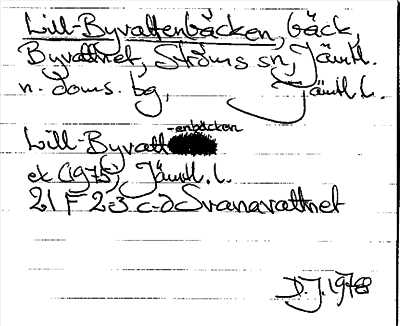 Lill-Byvattenbäcken, bäck,
Byvattnet, Ströms sn, Jämtl.
n. doms. bg, Jämtl L.
-enbäcken
Lill-Byvatt
ek (1975), Jämtl. l.
21 F 2-3 c-d Svanavattnet
D.J. 1978